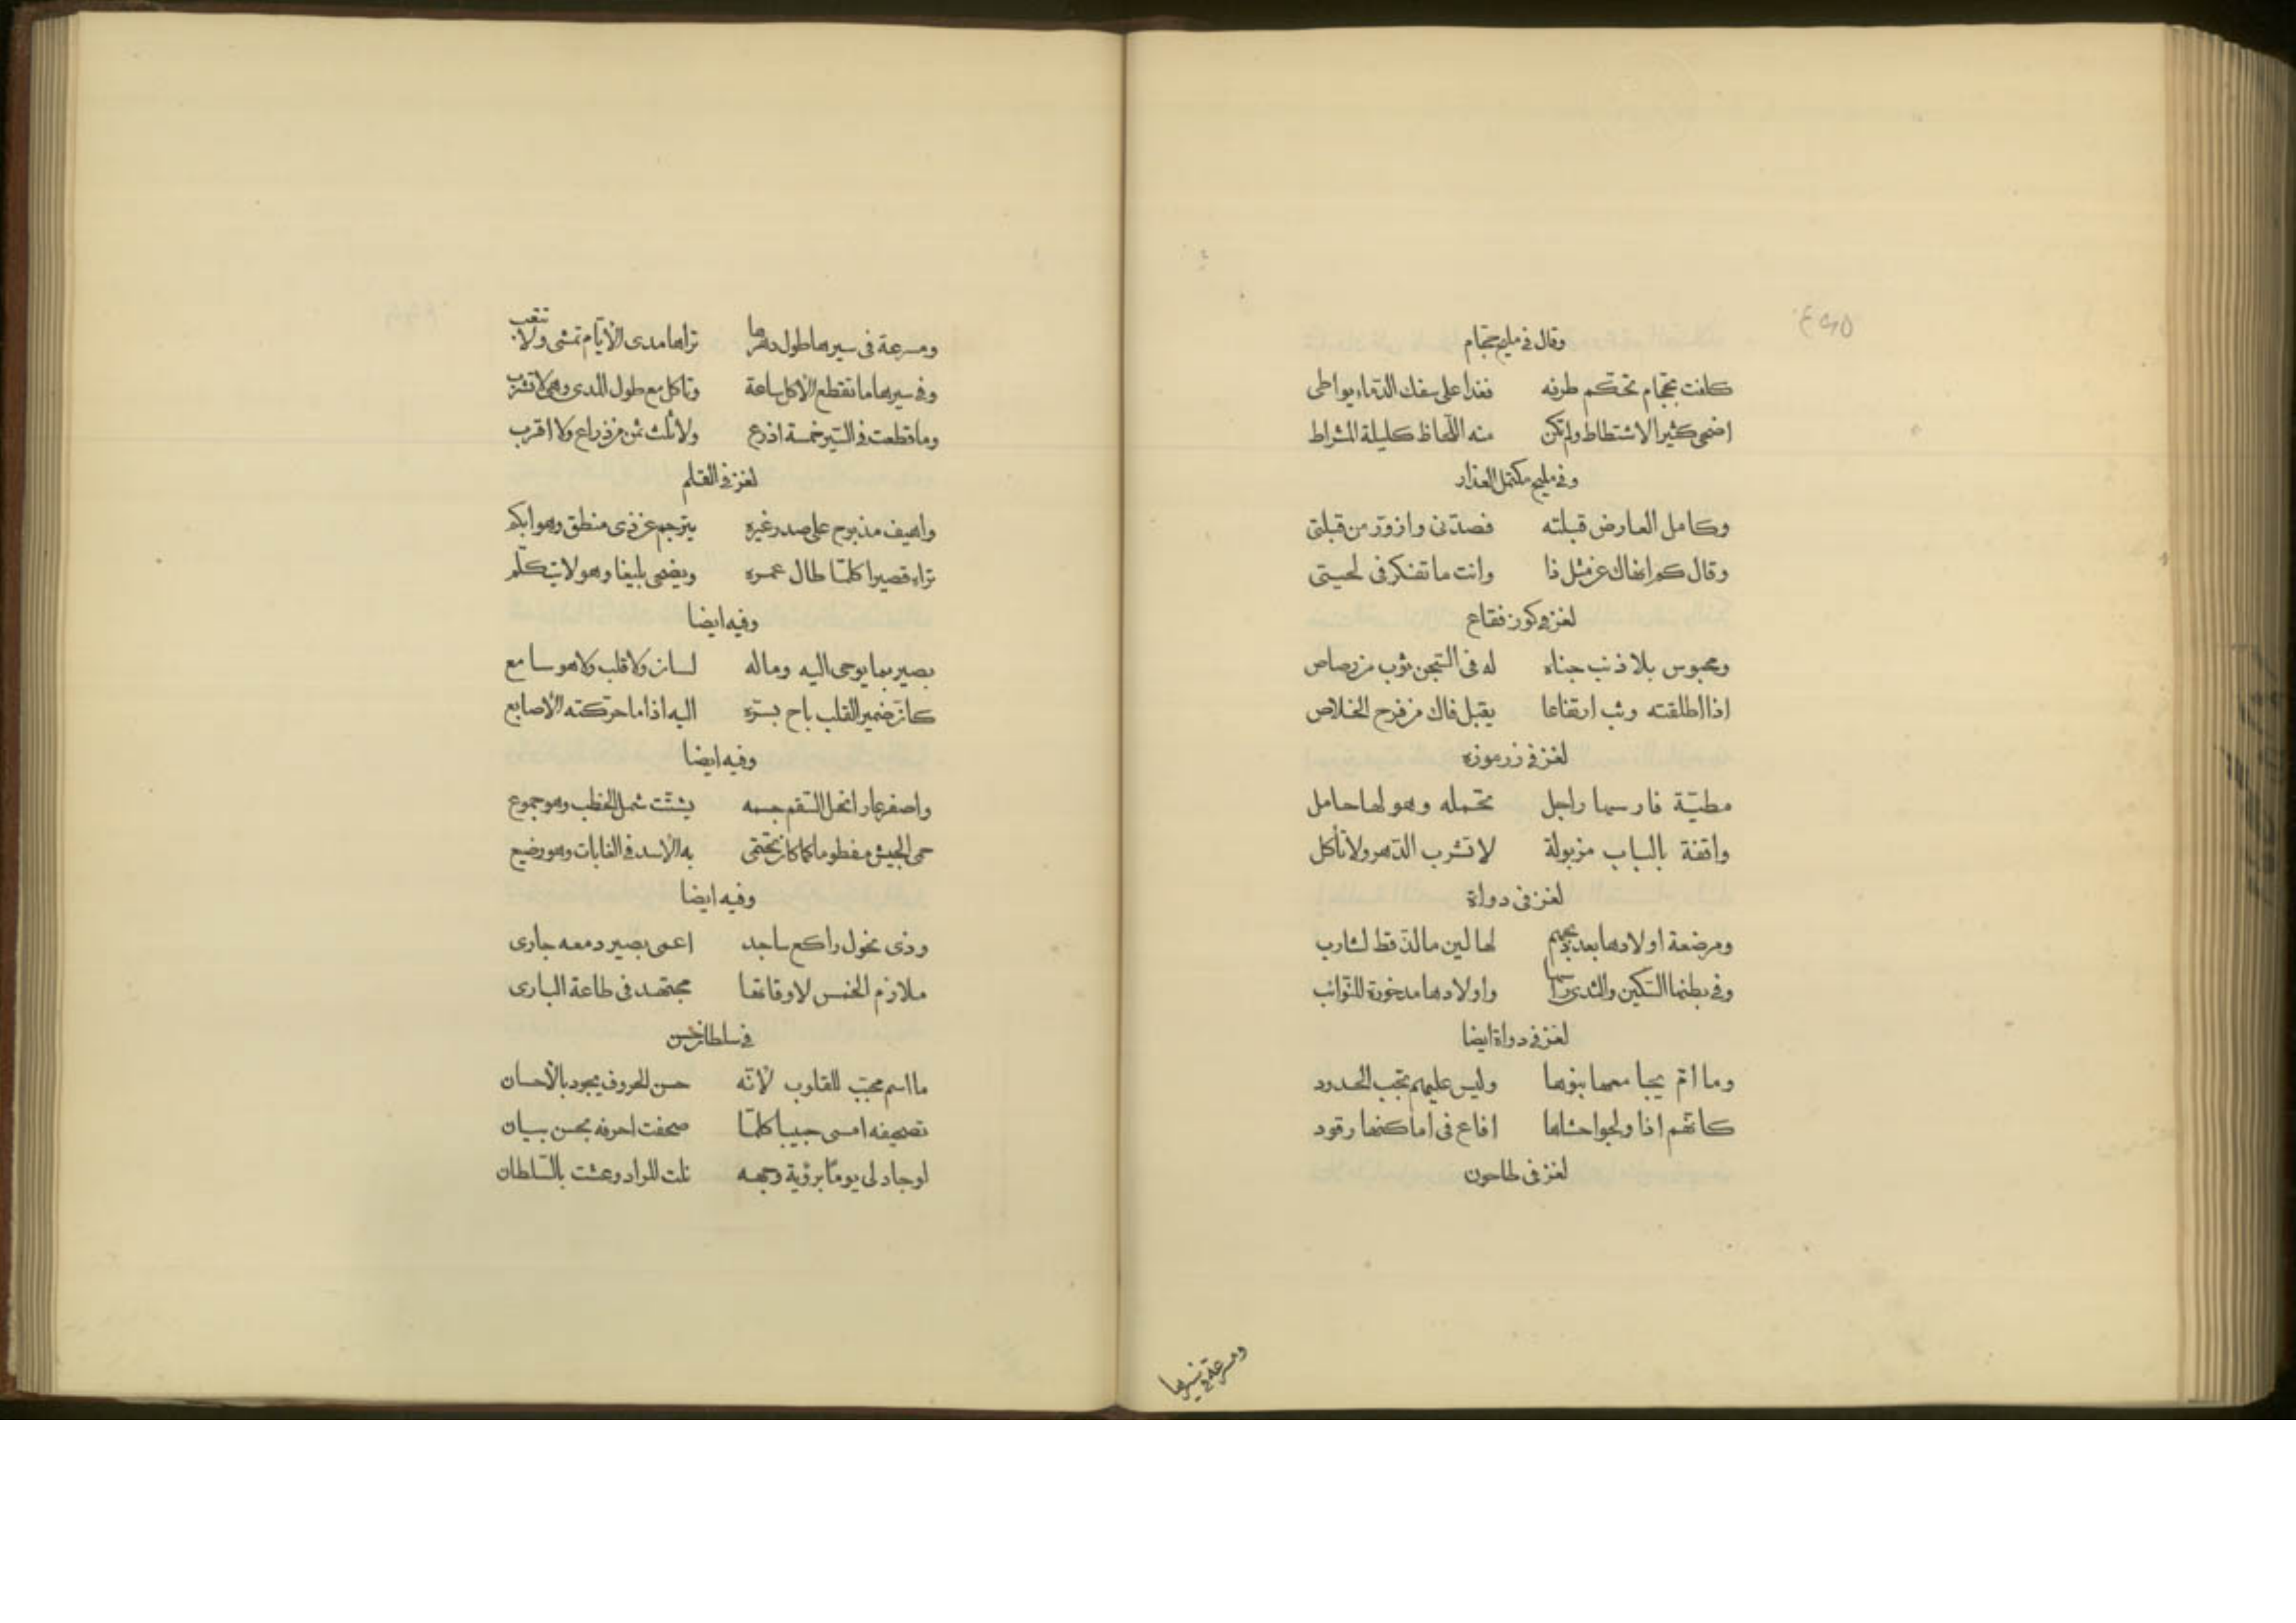 وقال في مليح حجام
كلفت بحجام تحكم طرفه فغدا على سفك الدماء يواطي
اضحى كثير الاشتطاط ولم تكن منه اللحاظ كليلة المشراط
وفي مليح مكتمل العذار
وكامل العارض قبلته فصدّنى وازورّ من قبلتى
وقال كم انهاك عن مثل ذا وانت ما تفكر فى لحيتى
لغز في كوز فقاع
ومحبوس بلا ذنب جناه له فى السّجن ثوب من رصاص
اذا اطلقته وثب ارتفاعا يقبل فاك من فرح الخلاص
لغز في زرموزه
مطيّة فارسها راجل تحمله وهو لها حامل
واقفة بالباب مزبولة لا تشرب الدّهر ولا تأكل
لغز فى دواة
ومرضعة اولادها بعد ذبحهم لها لبن ما لذّ قط لشارب
وفى بطنها السّكين والثدى راسها واولادها مدخورة للنوائب
لغز فى دواة ايضا
وما امّ يجامعها بنوها وليس عليهم تجب الحدود
كانّهم اذا ولجوا حشاها افاع فى اماكنها رقود
لغز فى طاحون
ومسرعة في سيرها
ومسرعة فى سيرها طول دهرها تراها مدى الأيّام تمشى ولا تتعب
وفى سيرها ما تقطع الأكل ساعة وتاكل مع طول المدى وهى لا تشرب
وما قطعت فى السّير خمسة اذرع ولا ثلث ثمن من ذراع ولا اقرب
لغز في القلم
واهيف مذبوح على صدر غيره يترجم عن ذى منطق وهو ابكم
تراه قصيرا كلّما طال عمره ويضحى بليغا وهو لا يتكلّم
وفيه ايضا
بصير بما يوحى اليه وما له لسان ولا قلب ولا هو سامع
كان ضمير القلب باح بسرّه اليه اذا ما حركته الأصابع
وفيه ايضا
واصفر عار انحل السّقم جسمه يشتّت شمل الخطب وهو جموع
حمى الجيش مفطوما كما كان تحتمى به الأسد فى الغابات وهو رضيع
وفيه ايضا
وذى نحول راكع ساجد اعمى بصير دمعه جارى
ملازم الخمس لاوقاتها مجتهد فى طاعة البارى
في سلطان حسن
ما اسم محبّب للقلوب لأنّه حسن الحروف يجود بالأحسان
تصحيفه امسى حبيبا كلّما صحفت احرفه بحسن بيان
لو جاد لى يومًا برؤية وجهه نلت المراد وعشت بالسّلطان